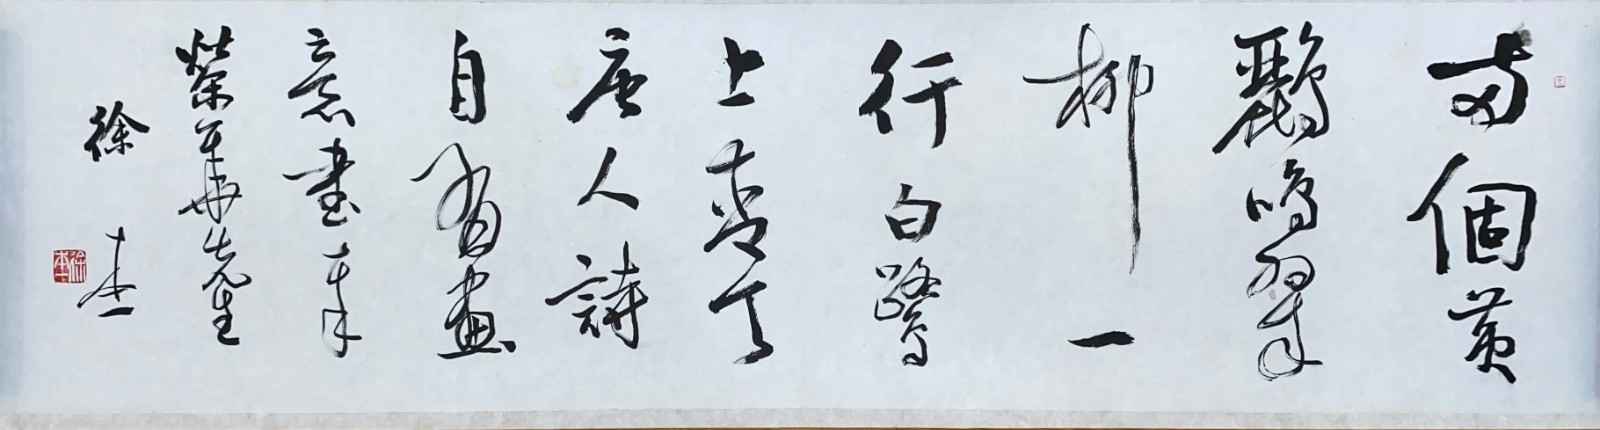 兩個黃
鸝鳴翠
柳一
行白鷺
上青天
唐人詩
自有畫
意書奉
榮華先生
徐杰
徐杰